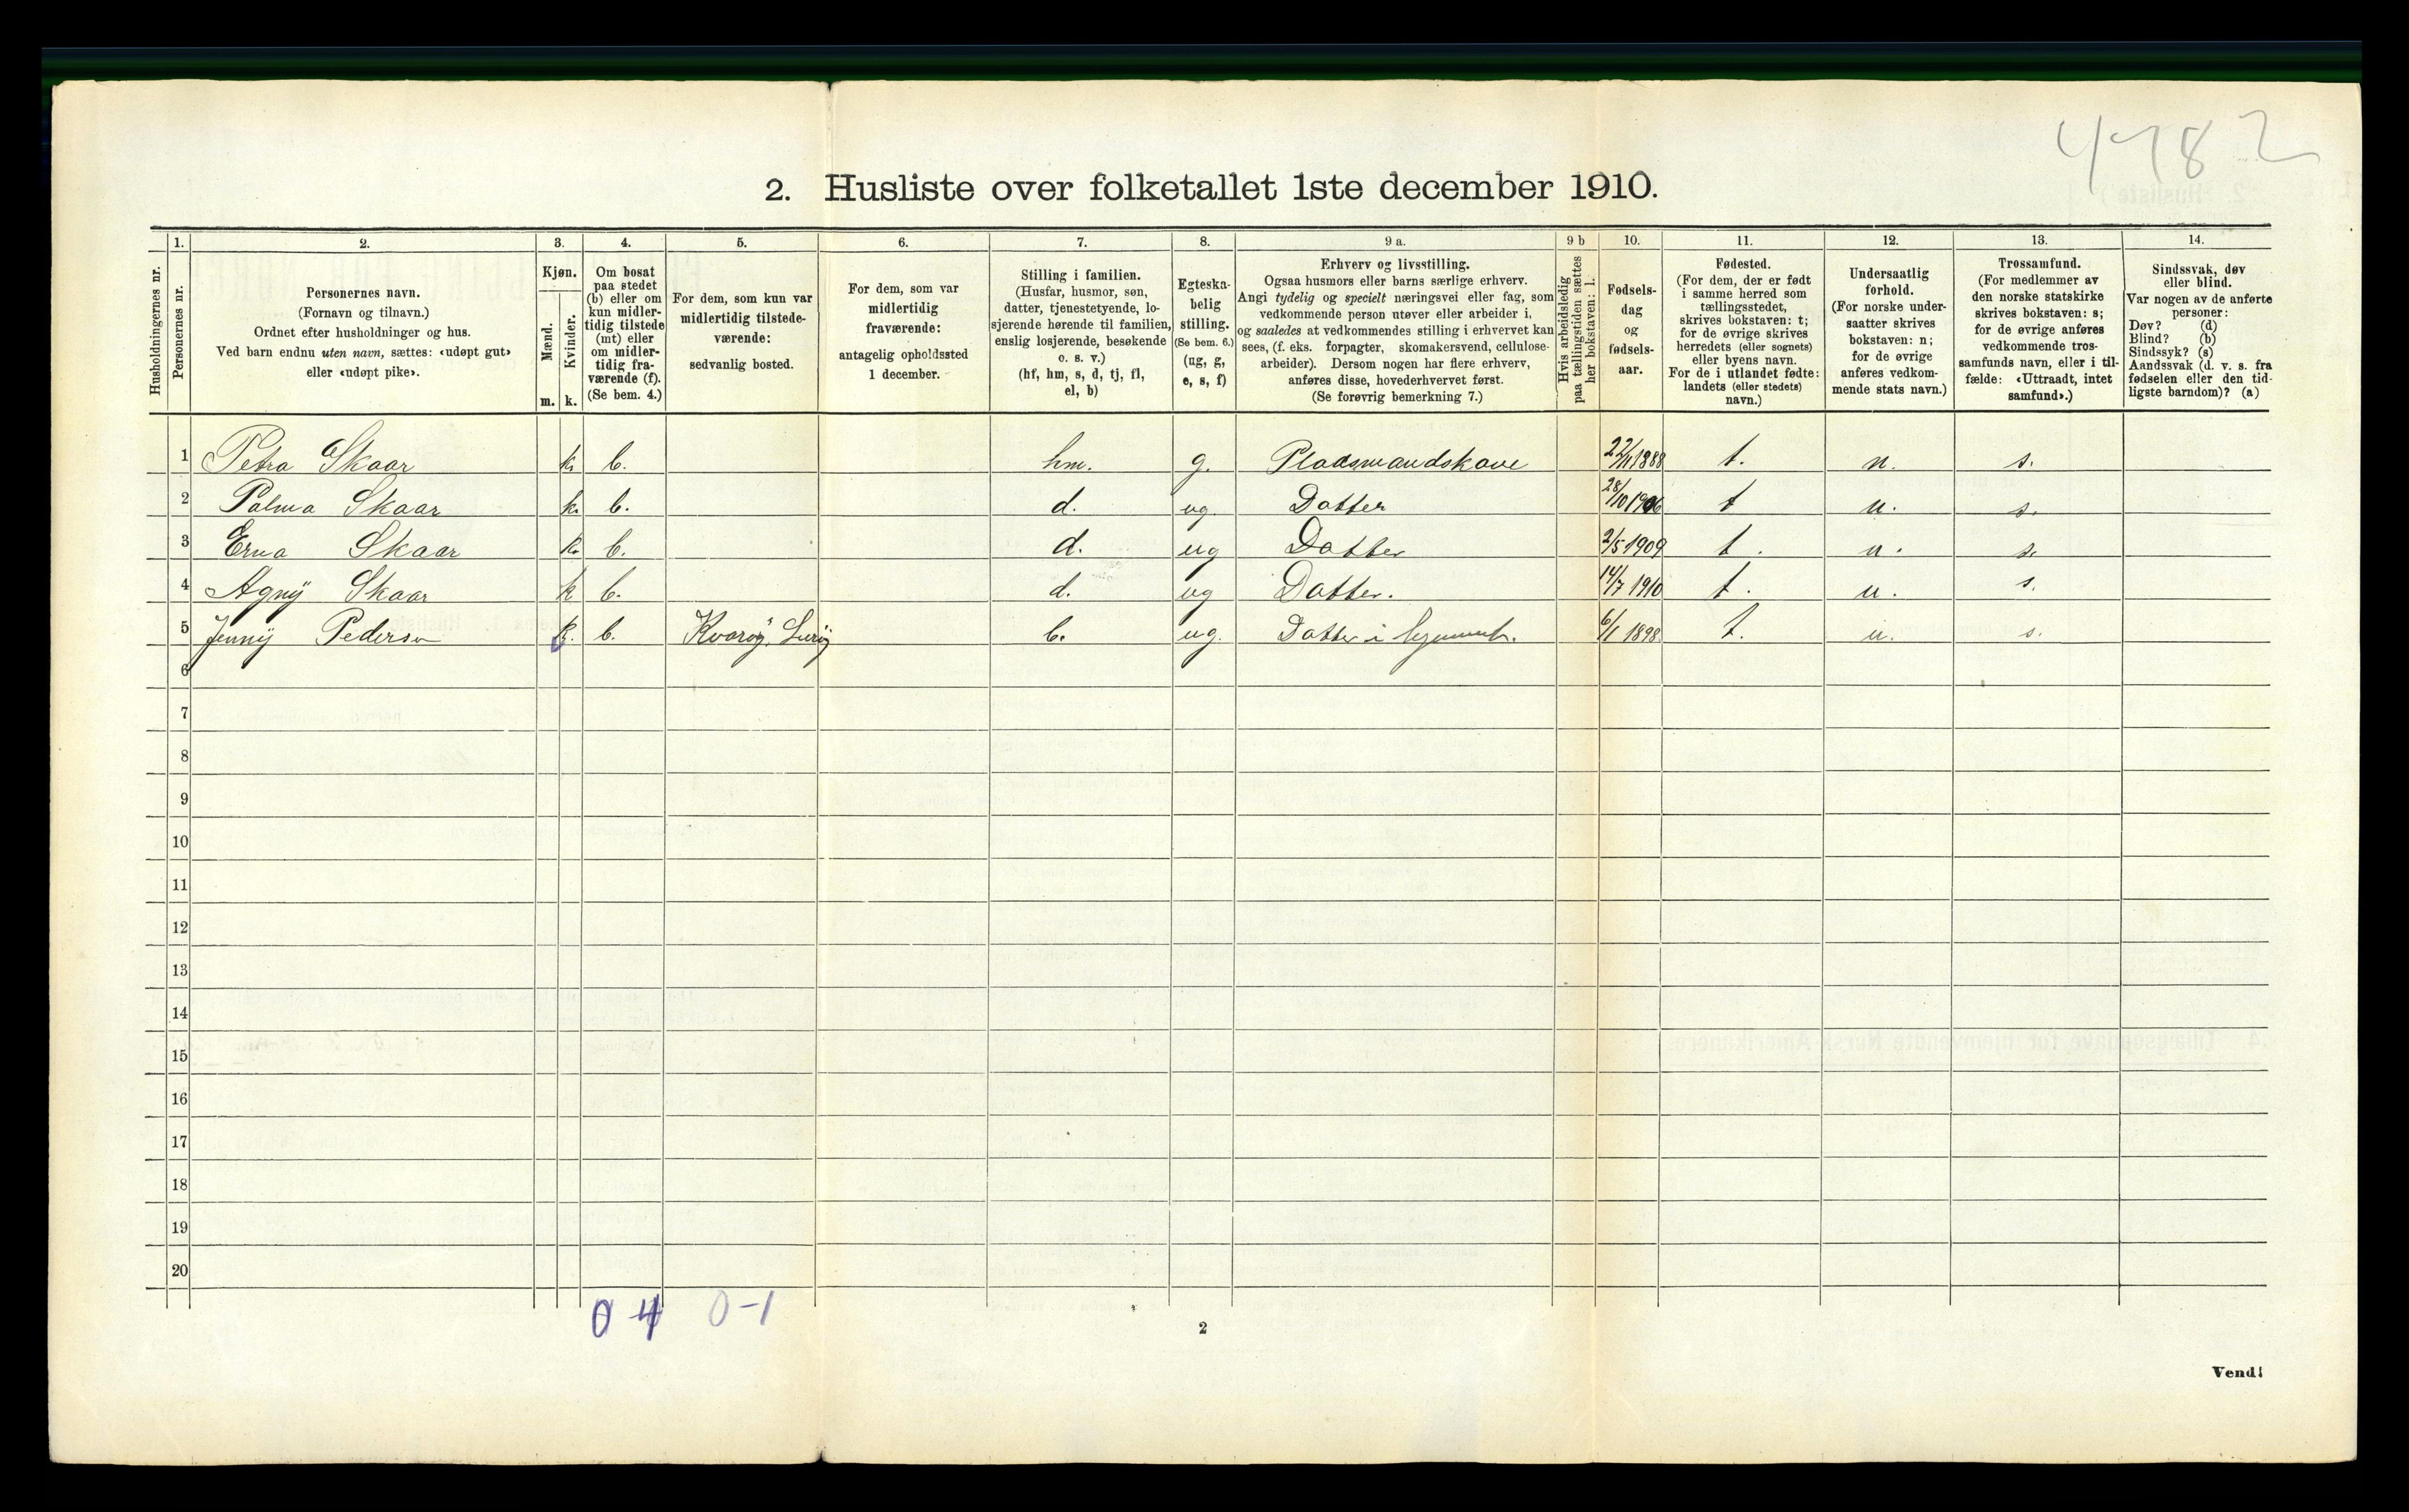 4782
2. Husliste over folketallet 1ste december 1910.
Husholdningernes nr.
1.
Personernes nr.
2.
Personernes navn.
(Fornavn og tilnavn.)
Ordnet efter husholdninger og hus.
Ved barn endnu uten navn, sættes: «udøpt gut»
eller «udøpt pike».
3.
Kjøn.
Mænd.
Kvinder.
m. k.
4.
Om bosat
paa stedet
(b) eller om
kun midler-
tidig tilstede
(mt) eller
om midler-
tidig fra-
værende (f).
(Se bem. 4.)
5.
For dem, som kun var
midlertidig tilstede-
værende:
sedvanlig bosted.
6.
For dem, som var
midlertidig
fraværende:
antagelig opholdssted
1 december.
7.
Stilling i familien.
(Husfar, husmor, søn,
datter, tjenestetyende, lo-
sjerende hørende til familien,
enslig losjerende, besøkende
o. s. v.)
(hf, hm, s, d, tj, fl,
el, b)
8.
Egteska-
belig
stilling.
(Se bem. 6.)
(ug, g,
e, s, f)
9 a.
Erhverv og livsstilling.
Ogsaa husmors eller barns særlige erhverv.
Angi tydelig og specielt næringsvei eller fag, som
vedkommende person utøver eller arbeider i,
og saaledes at vedkommendes stilling i erhvervet kan
sees, (f. eks. forpagter, skomakersvend, cellulose-
arbeider). Dersom nogen har flere erhverv,
anføres disse, hovederhvervet først.
(Se forøvrig bemerkning 7.)
9 b
Hvis arbeidsledig
paa tællingstiden sættes
her bokstaven: l.
10.
Fødsels-
dag
og
fødsels-
aar.
11.
Fødested.
(For dem, der er født
i samme herred som
tællingsstedet,
skrives bokstaven: t;
for de øvrige skrives
herredets (eller sognets)
eller byens navn.
For de i utlandet fødte:
landets (eller stedets)
navn.)
12.
Undersaatlig
forhold.
(For norske under-
saatter skrives
bokstaven: n;
for de øvrige
anføres vedkom-
mende stats navn.)
13.
Trossamfund.
(For medlemmer av
den norske statskirke
skrives bokstaven: s;
for de øvrige anføres
vedkommende tros-
samfunds navn, eller i til-
fælde: «Uttraadt, intet
samfund».)
14.
Sindssvak, døv
eller blind.
Var nogen av de anførte
personer:
Døv? (d)
Blind? (b)
Sindssyk? (s)
Aandssvak (d. v. s. fra
fødselen eller den tid-
ligste barndom)? (a)
1 Petra Skaar k. b. hm. g. Pladsmandskone 22/11 1888 t. n. s.
2 Palma Skaar k. b. d. ug. Datter 28/10 1906 t n. s.
3 Erna Skaar k. b. d. ug Datter 2/5 1909 t. n. s.
4 Agny Skaar k b. d. ug Datter. 14/7 1910 t. n. s.
5 Jenny Pedersen k. b. Kvarøy, Lurøy b. ug. Datter i 6/1 1898. t. n. s.
6
7
8
9
10
11
12
13
14
15
16
17
18
19
20
0 4 0-1
2
Vend!